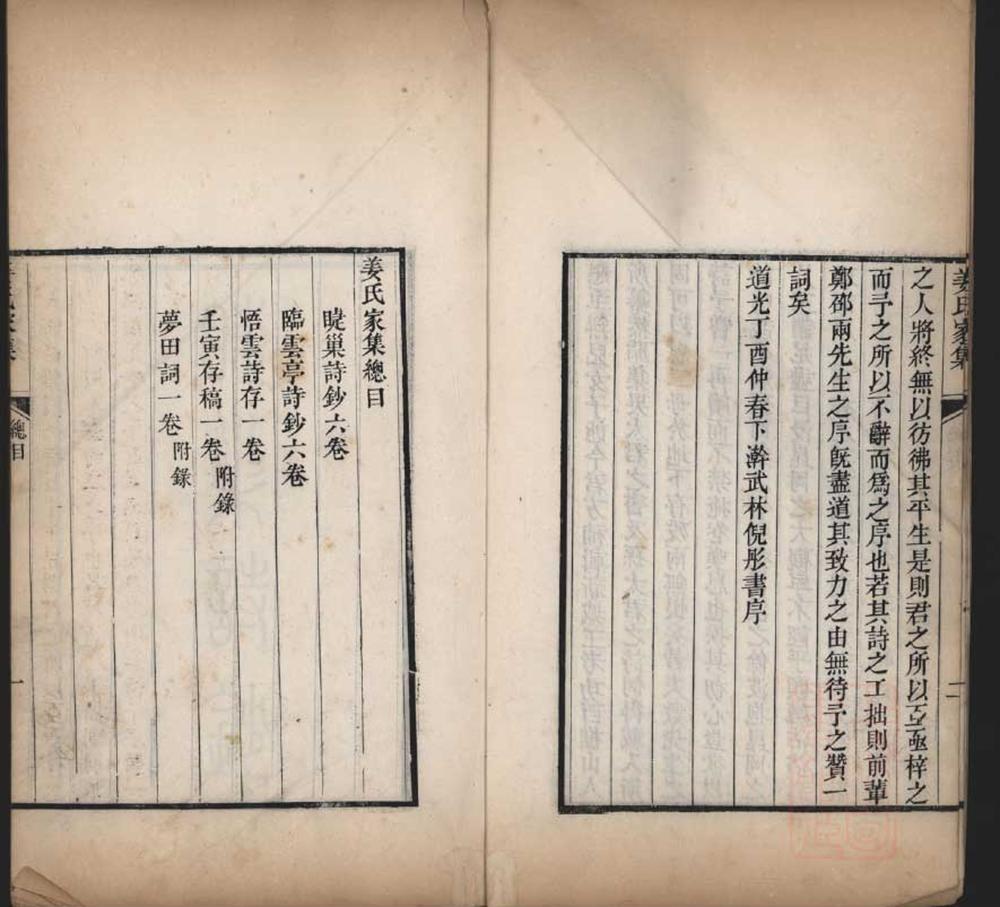 姜氏家集
之人將終無以彷彿其平生是則君之所以亟亟梓之
而予之所以不辭而爲之序也若其詩之工拙則前輩
鄭邵兩先生之序旣盡道其致力之由無待予之贊一
詞矣
道光丁酉仲春下澣武林倪彤書序
姜氏家集總目
曉巢詩鈔六卷
臨雲亭詩鈔六卷
悟雲詩存一卷
壬寅存稿一卷附錄
夢田詞一卷附錄
姜氏家集
總目
一